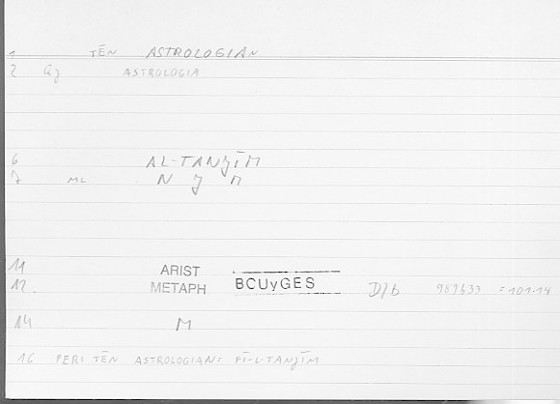 1 TĒN ASTROLOGIAN
2 ASTROLOGIA
6 AL-TANǧĪM
7 ML N ǧ M
11 ARIST
12. METAPH BCUyGES D/b 989b33 = 101.14
14 M
16 PERI TĒN ASTROLOGIAN: FĪ-L-TANǧĪM